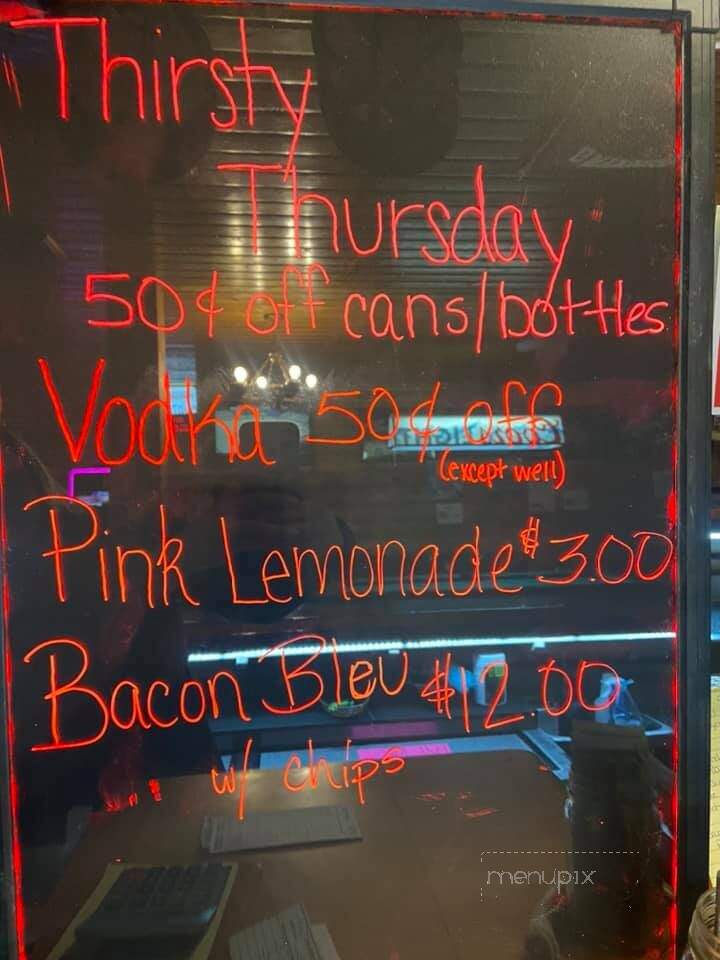 Thirsty
Thursday
50¢ off cans/bottles
Vodka 50¢ off
(except well)
Pink Lemonade $3.00
Bacon Bleu $12.00
w/ chips
menupix